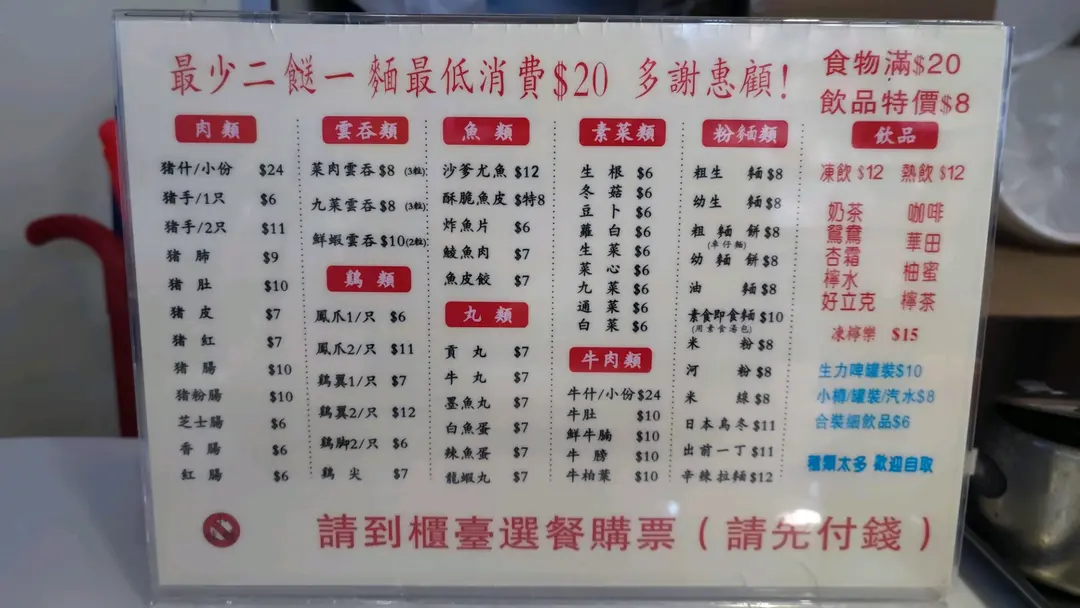 最少二餸一麵最低消費$20 多謝惠顧!
食物滿$20
飲品特價$8
肉類
猪什/小份 $24
猪手/1只 $6
猪手/2只 $11
猪肺 $9
猪肚 $10
猪皮 $7
猪紅 $7
猪腸 $10
猪粉腸 $10
芝士腸 $6
香腸 $6
紅腸 $6
雲吞類
菜肉雲吞 $8 (3粒)
九菜雲吞 $8 (3粒)
鮮蝦雲吞 $10 (2粒)
鷄類
鳳爪1/只 $6
鳳爪2/只 $11
鷄翼1/只 $7
鷄翼2/只 $12
鷄脚2/只 $6
鷄尖 $7
魚類
沙爹尤魚 $12
酥脆魚皮 $特8
炸魚片 $6
鯪魚肉 $7
魚皮餃 $7
丸類
貢丸 $7
牛丸 $7
墨魚丸 $7
白魚蛋 $7
辣魚蛋 $7
龍蝦丸 $7
素菜類
生根 $6
冬菇 $6
豆卜 $6
蘿白 $6
生菜 $6
菜心 $6
九菜 $6
通菜 $6
白菜 $6
牛肉類
牛什/小份 $24
牛肚 $10
鮮牛腩 $10
牛膀 $10
牛柏葉 $10
粉麵類
粗生麵 $8
幼生麵 $8
粗麵餅 $8
(車仔麵)
幼麵餅 $8
油麵 $8
素食即食麵 $10
(用素食湯包)
米粉 $8
河粉 $8
米線 $8
日本烏冬 $11
出前一丁 $11
辛辣拉麵 $12
飲品
凍飲 $12 熱飲 $12
奶茶 咖啡
鴛鴦 華田
杏霜 柚蜜
檸水 檸茶
好立克
凍檸樂 $15
生力啤罐裝$10
小樽/罐裝/汽水$8
合裝細飲品$6
種類太多 歡迎自取
請到櫃臺選餐購票(請先付錢)